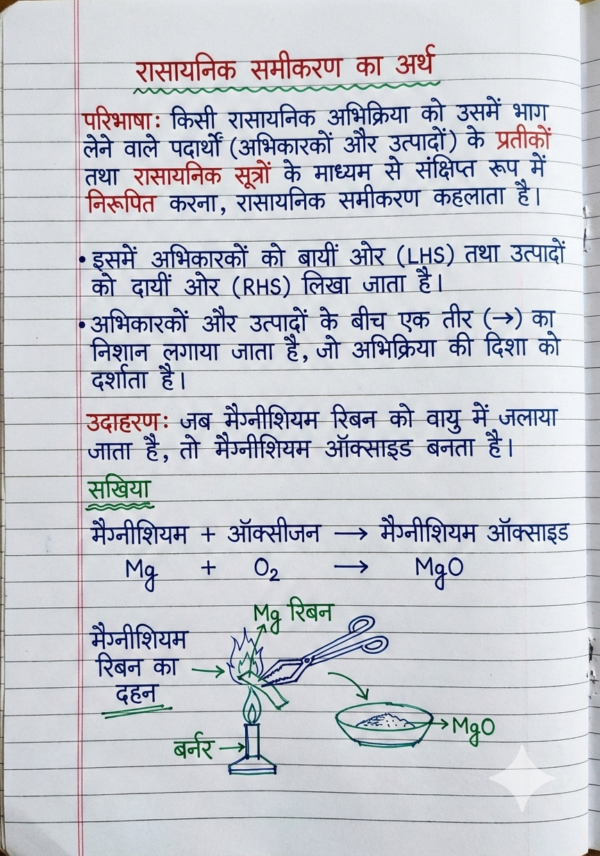 रासायनिक समीकरण का अर्थ
परिभाषा: किसी रासायनिक अभिक्रिया को उसमें भाग
लेने वाले पदार्थों (अभिकारकों और उत्पादों) के प्रतीकों
तथा रासायनिक सूत्रों के माध्यम से संक्षिप्त रूप में
निरूपित करना, रासायनिक समीकरण कहलाता है।
• इसमें अभिकारकों को बायीं ओर (LHS) तथा उत्पादों
को दायीं ओर (RHS) लिखा जाता है।
• अभिकारकों और उत्पादों के बीच एक तीर (→) का
निशान लगाया जाता है, जो अभिक्रिया की दिशा को
दर्शाता है।
उदाहरण: जब मैग्नीशियम रिबन को वायु में जलाया
जाता है, तो मैग्नीशियम ऑक्साइड बनता है।
सखिया
मैग्नीशियम + ऑक्सीजन → मैग्नीशियम ऑक्साइड
Mg + O₂ → MgO
Mg रिबन
मैग्नीशियम
रिबन का
दहन
MgO
बर्नर